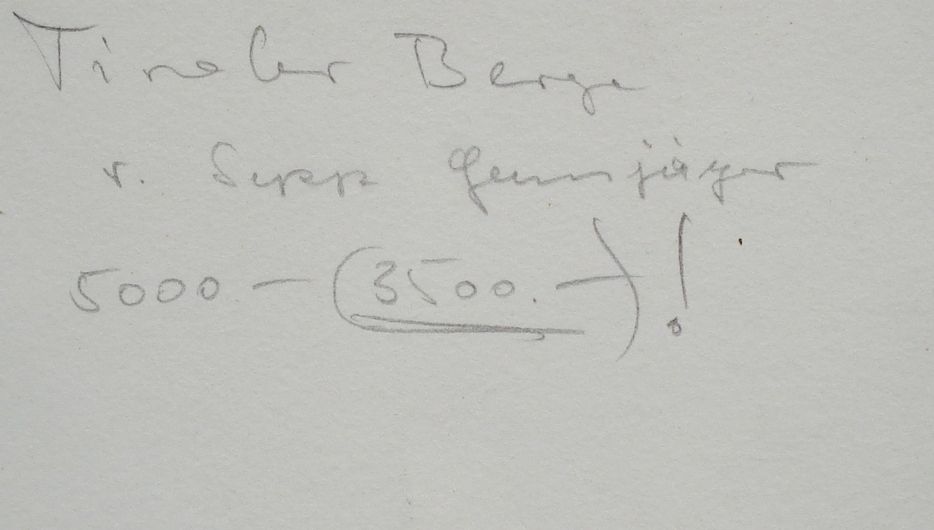 Tiroler Berge
v. Sepp Gemsjäger
5000.— (3500.—)!